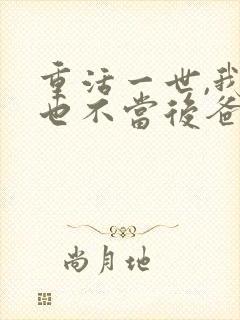 重活一世,我
也不當後爸
尚月地